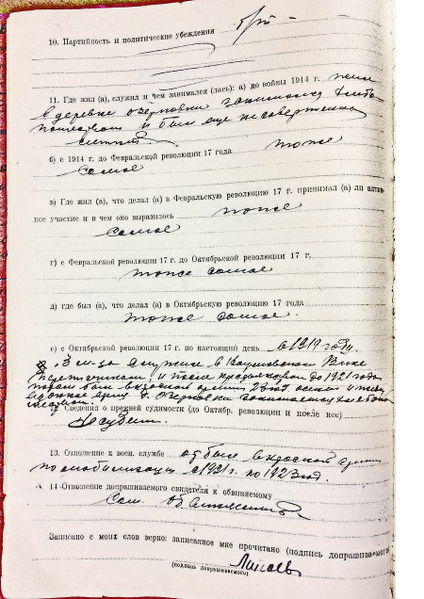 10. Партийность и политические убеждения б/п
11. Где жил (а), служил и чем занимался (лась): а) до войны 1914 г. жил
в деревне занимался хлебо
пашеством и был еще несовершенно
летний
б) с 1914 до Февральской революции 17 года тоже
самое
в) Где жил (а), что делал (а) в Февральскую революцию 17 г. принимал (а) ли актив-
ное участие и в чем оно выразилось тоже
самое
г) с Февральской революции 17 г. до Октябрьской революции 17 г.
тоже самое
д) где был (а), что делал (а) в Октябрьскую революцию 17 года
тоже самое.
е) с Октябрьской революции 17 г. по настоящий день в 1919 году
3 м-ца служил в
и после до 1921 года
был в красной армии 23 год
12 Сведения о прежней судимости (до Октябр. революции и после нее)
Не судим.
13. Отношение к воен. службе отбыл в красной армии
по мобилизации с 1921 г. по 1923 год.
14 Отношение допрашиваемого свидетеля к обвиняемому
Сам обвиняемый
Записано с моих слов верно: записанное мне прочитано (подпись допрашиваемого)
(подпись допрашивавшего)